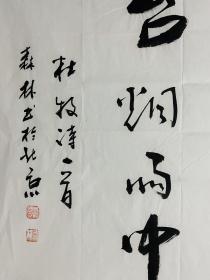 台烟雨中
杜牧诗一首
森林书于北京